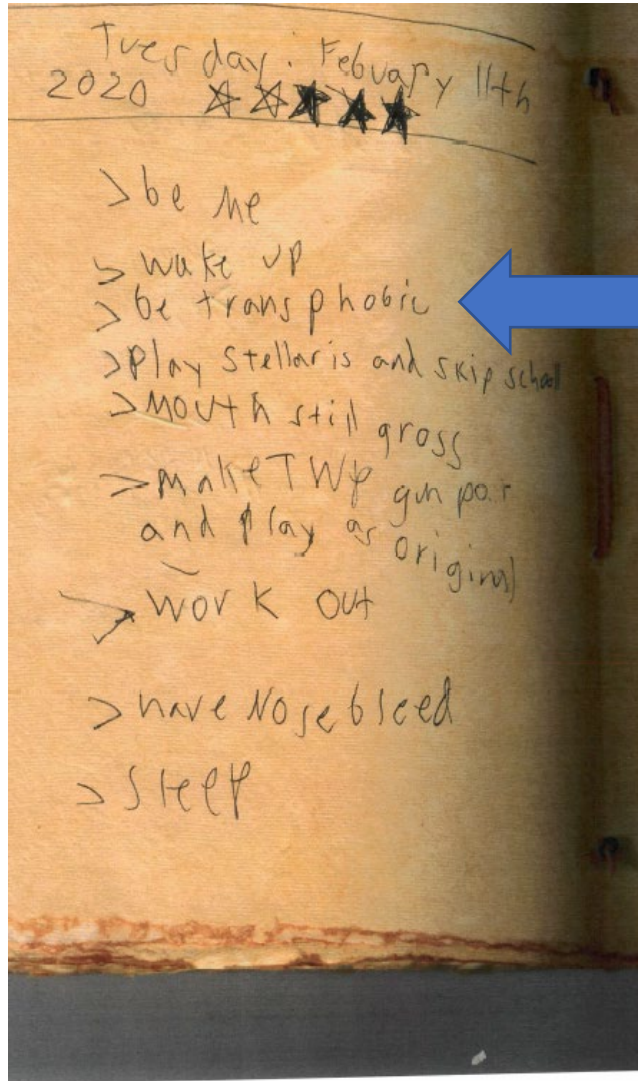 Tuesday. Febuary 11th
2020
> be me
> wake up
> be transphobic
> Play Stellaris and skip school
> Mouth still gross
> make TWP gun
and play as original
> work out
> have Nosebleed
> Sleep